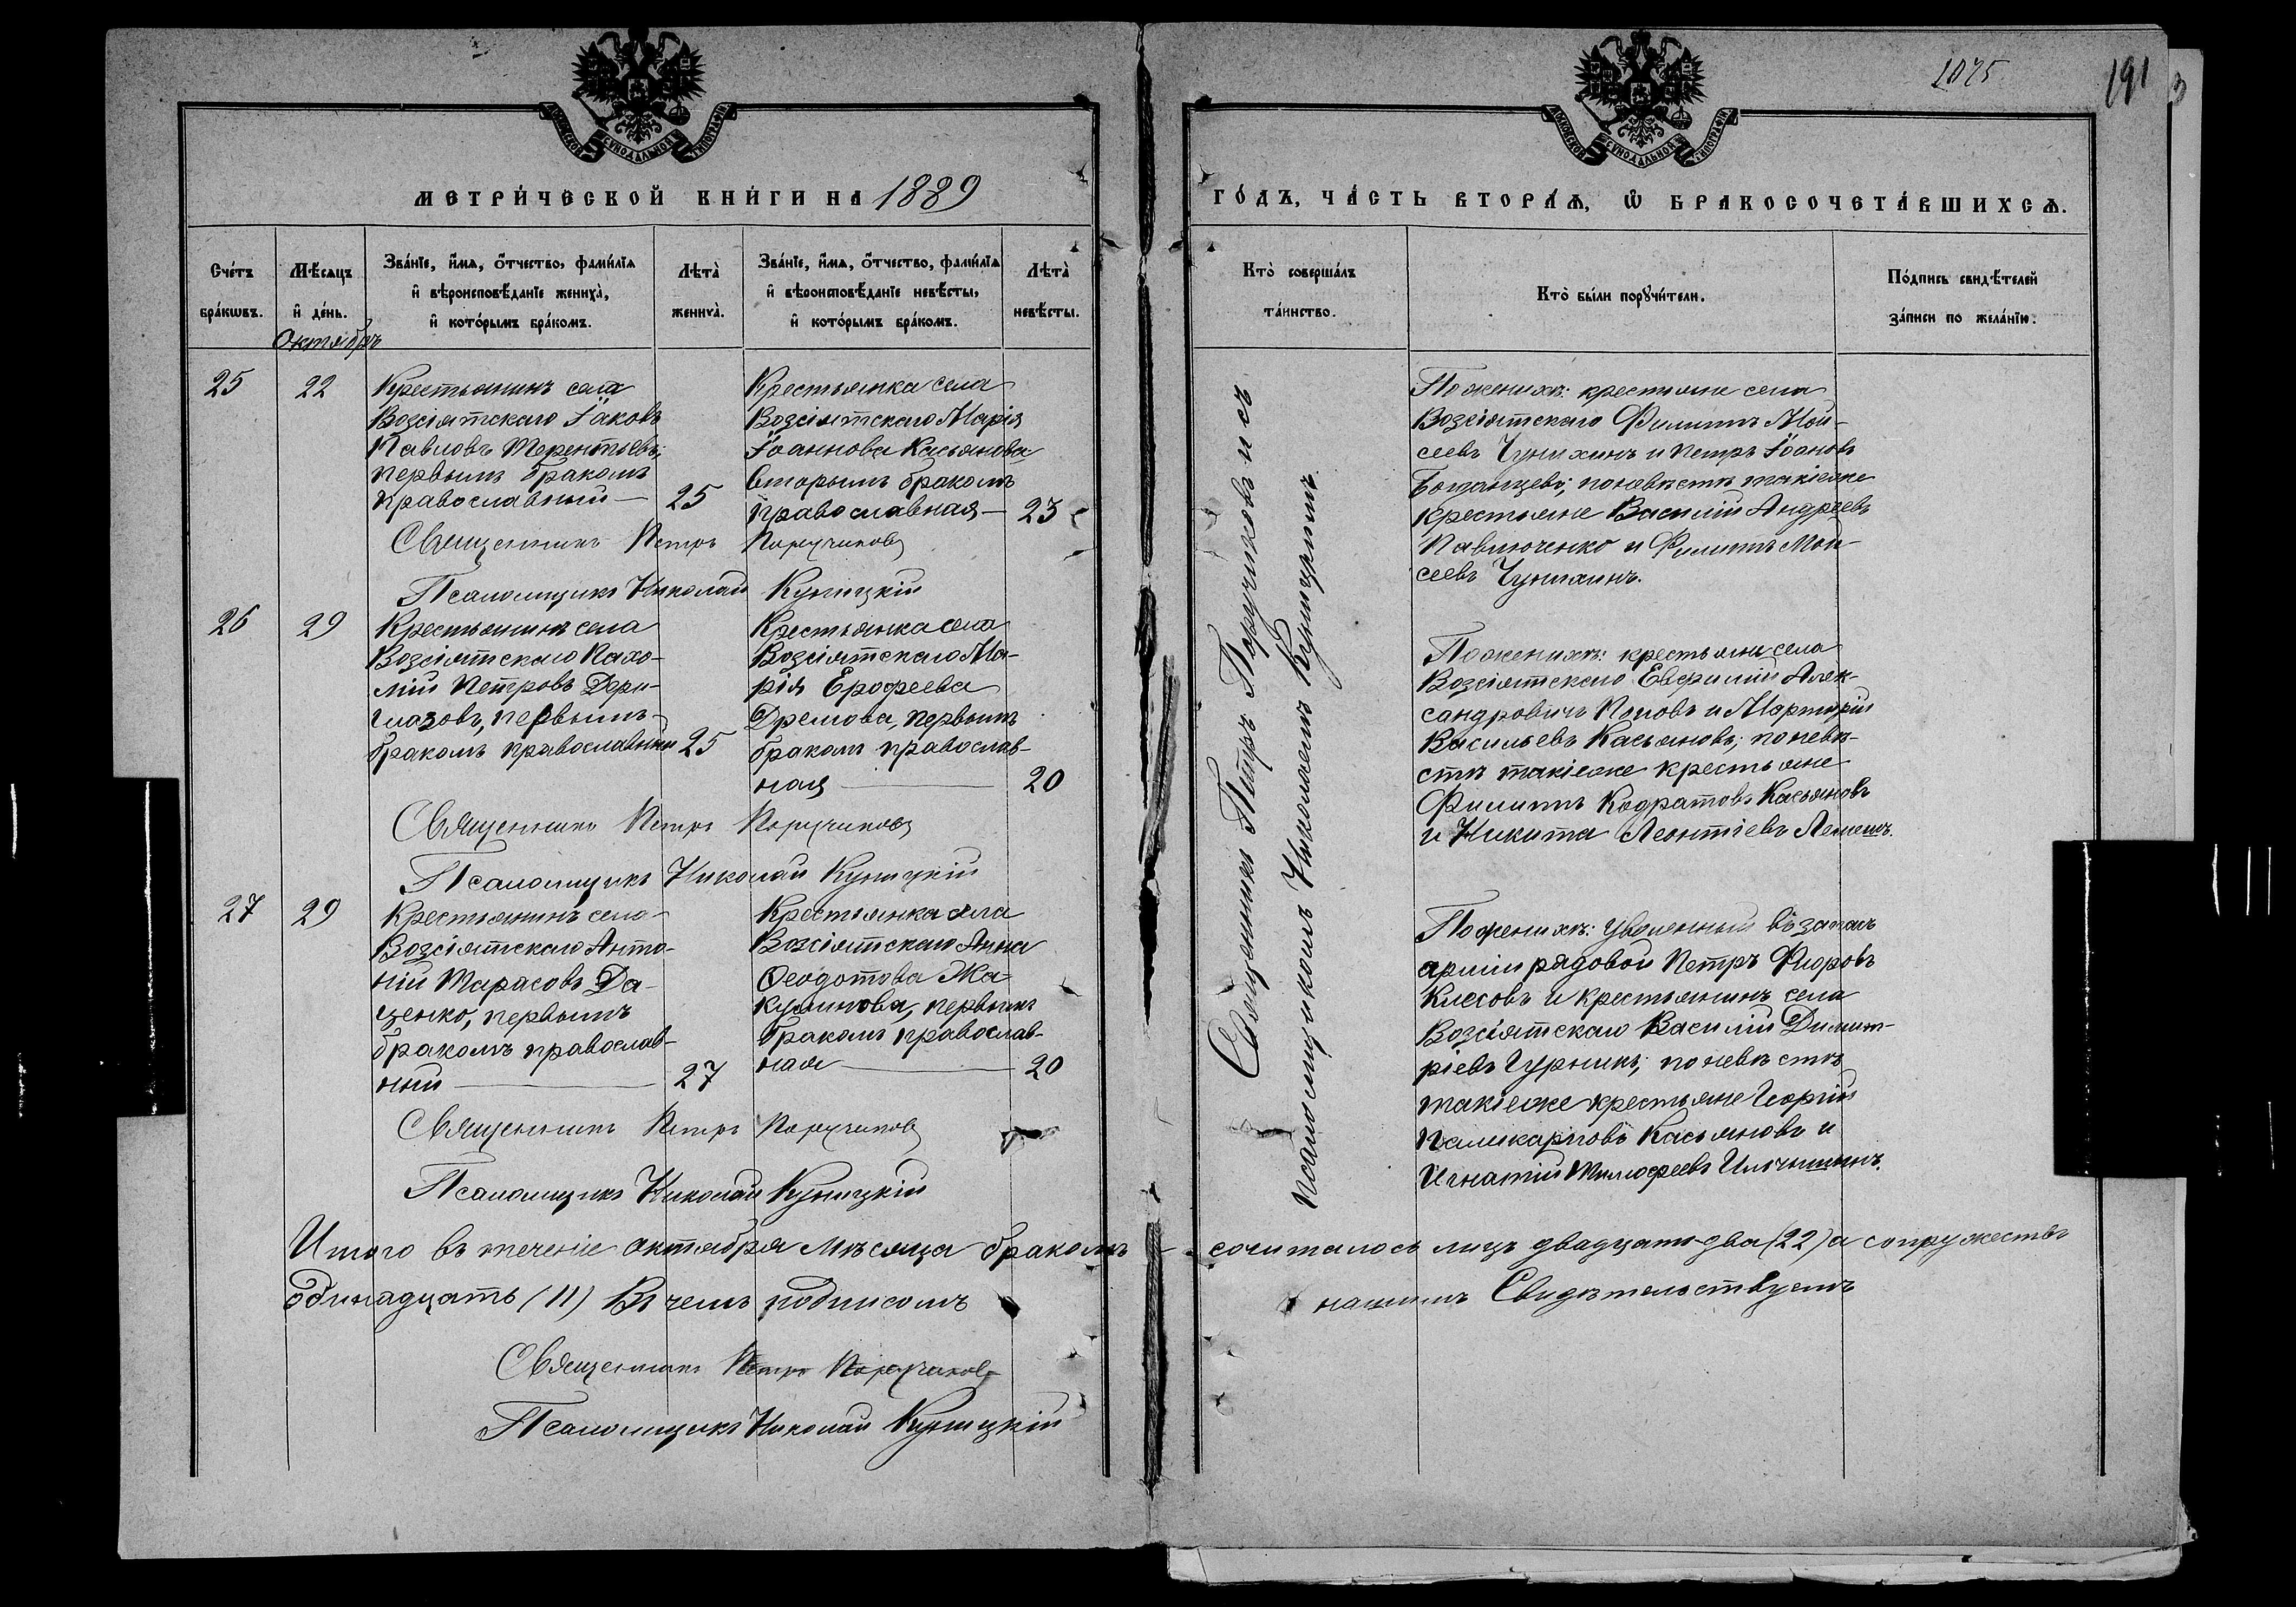 1075
191
3
МОСКОВСКОЙ СУНОДАЛЬНОЙ ТИПОГРАФІИ
МОСКОВСКОЙ СУНОДАЛЬНОЙ ТИПОГРАФІИ
МЕТРИ́ЧЕСКОЙ КНИ́ГИ НА 1889
ГО́ДЪ, ЧА́СТЬ ВТОРА́Ѧ, Ѿ БРАКОСОЧЕТА́ВШИХСѦ.
Сче́тъ
бра́кѡвъ.
Мѣ́сѧцъ
и҆ де́нь.
Зва́нїе, и҆́мѧ, ѻ҆́тчество, фами́лїѧ
и҆ вѣроисповѣ́данїе жениха̀,
и҆ кото́рымъ бра́комъ.
Лѣта̀
жениха̀.
Зва́нїе, и҆́мѧ, ѻ҆́тчество, фами́лїѧ
и҆ вѣроисповѣ́данїе невѣ́сты,
и҆ кото́рымъ бра́комъ.
Лѣта̀
невѣ́сты.
Кто̀ соверша́лъ
та́инство.
Кто̀ бы́ли порꙋчи́тели.
По́дпись свидѣ́телей
за́писи по жела́нїю.
Октябрь
25
22
Крестьянинъ села
Возсіятскаго Іаковъ
Павловъ Терентьевъ,
первымъ бракомъ
православный —
25
Крестьянка села
Возсіятскаго Марія
Іоаннова Касьянова
вторымъ бракомъ
православная —
23
По женихѣ: крестьяне села
Возсіятскаго Филиппъ Мои-
сеевъ Чунихинъ и Петръ Іоановъ
по невѣстѣ такіеже
крестьяне Василій Андреевъ
Павлюченко и Филиппъ Мои-
сеевъ Чунихинъ.
Священникъ Петръ Поручиковъ
Псаломщикъ Николай Куницкій
26
29
Крестьянинъ села
Возсіятскаго Пахо-
мій Петровъ Дери-
глазовъ, первымъ
бракомъ православный
25
Крестьянка села
Возсіятскаго Ма-
рія Ерофеева
Дремова, первымъ
бракомъ православ-
ная —
20
По женихѣ: крестьяне села
Возсіятскаго Евфимій Алек-
сандровичъ Поповъ и Мартирій
Васильевъ Касьяновъ; по невѣ-
стѣ такіеже крестьяне
Филиппъ Кодратовъ Касьяновъ
и Никита Леонтіевъ
Священникъ Петръ Поручиковъ
Псаломщикъ Николай Куницкій
27
29
Крестьянинъ села
Возсіятскаго Анто-
ній Тарасовъ Да-
ценко, первымъ
бракомъ православ-
ный —
27
Крестьянка села
Возсіятскаго Анна
Ѳеодотова Жа-
первымъ
бракомъ православ-
ная —
20
По женихѣ: уволенный въ запасъ
арміи рядовой Петръ Флоровъ
Клесовъ и крестьянинъ села
Возсіятскаго Василій Димит-
ріевъ Гурникъ; по невѣстѣ
такіеже крестьяне Георгій
Поликарповъ Касьяновъ и
Игнатій Тимофеевъ
Священникъ Петръ Поручиковъ
Псаломщикъ Николай Куницкій
Священникъ Петръ Поручиковъ и съ
псаломщикомъ Николаемъ Куницкимъ.
Итого въ теченіе октября мѣсяца бракомъ сочиталось лицъ двадцать-два (22) а супружествъ
одинадцать (11) Въ чемъ подписомъ нашимъ Свидѣтельствуемъ
Священникъ Петръ Поручиковъ
Псаломщикъ Николай Куницкій